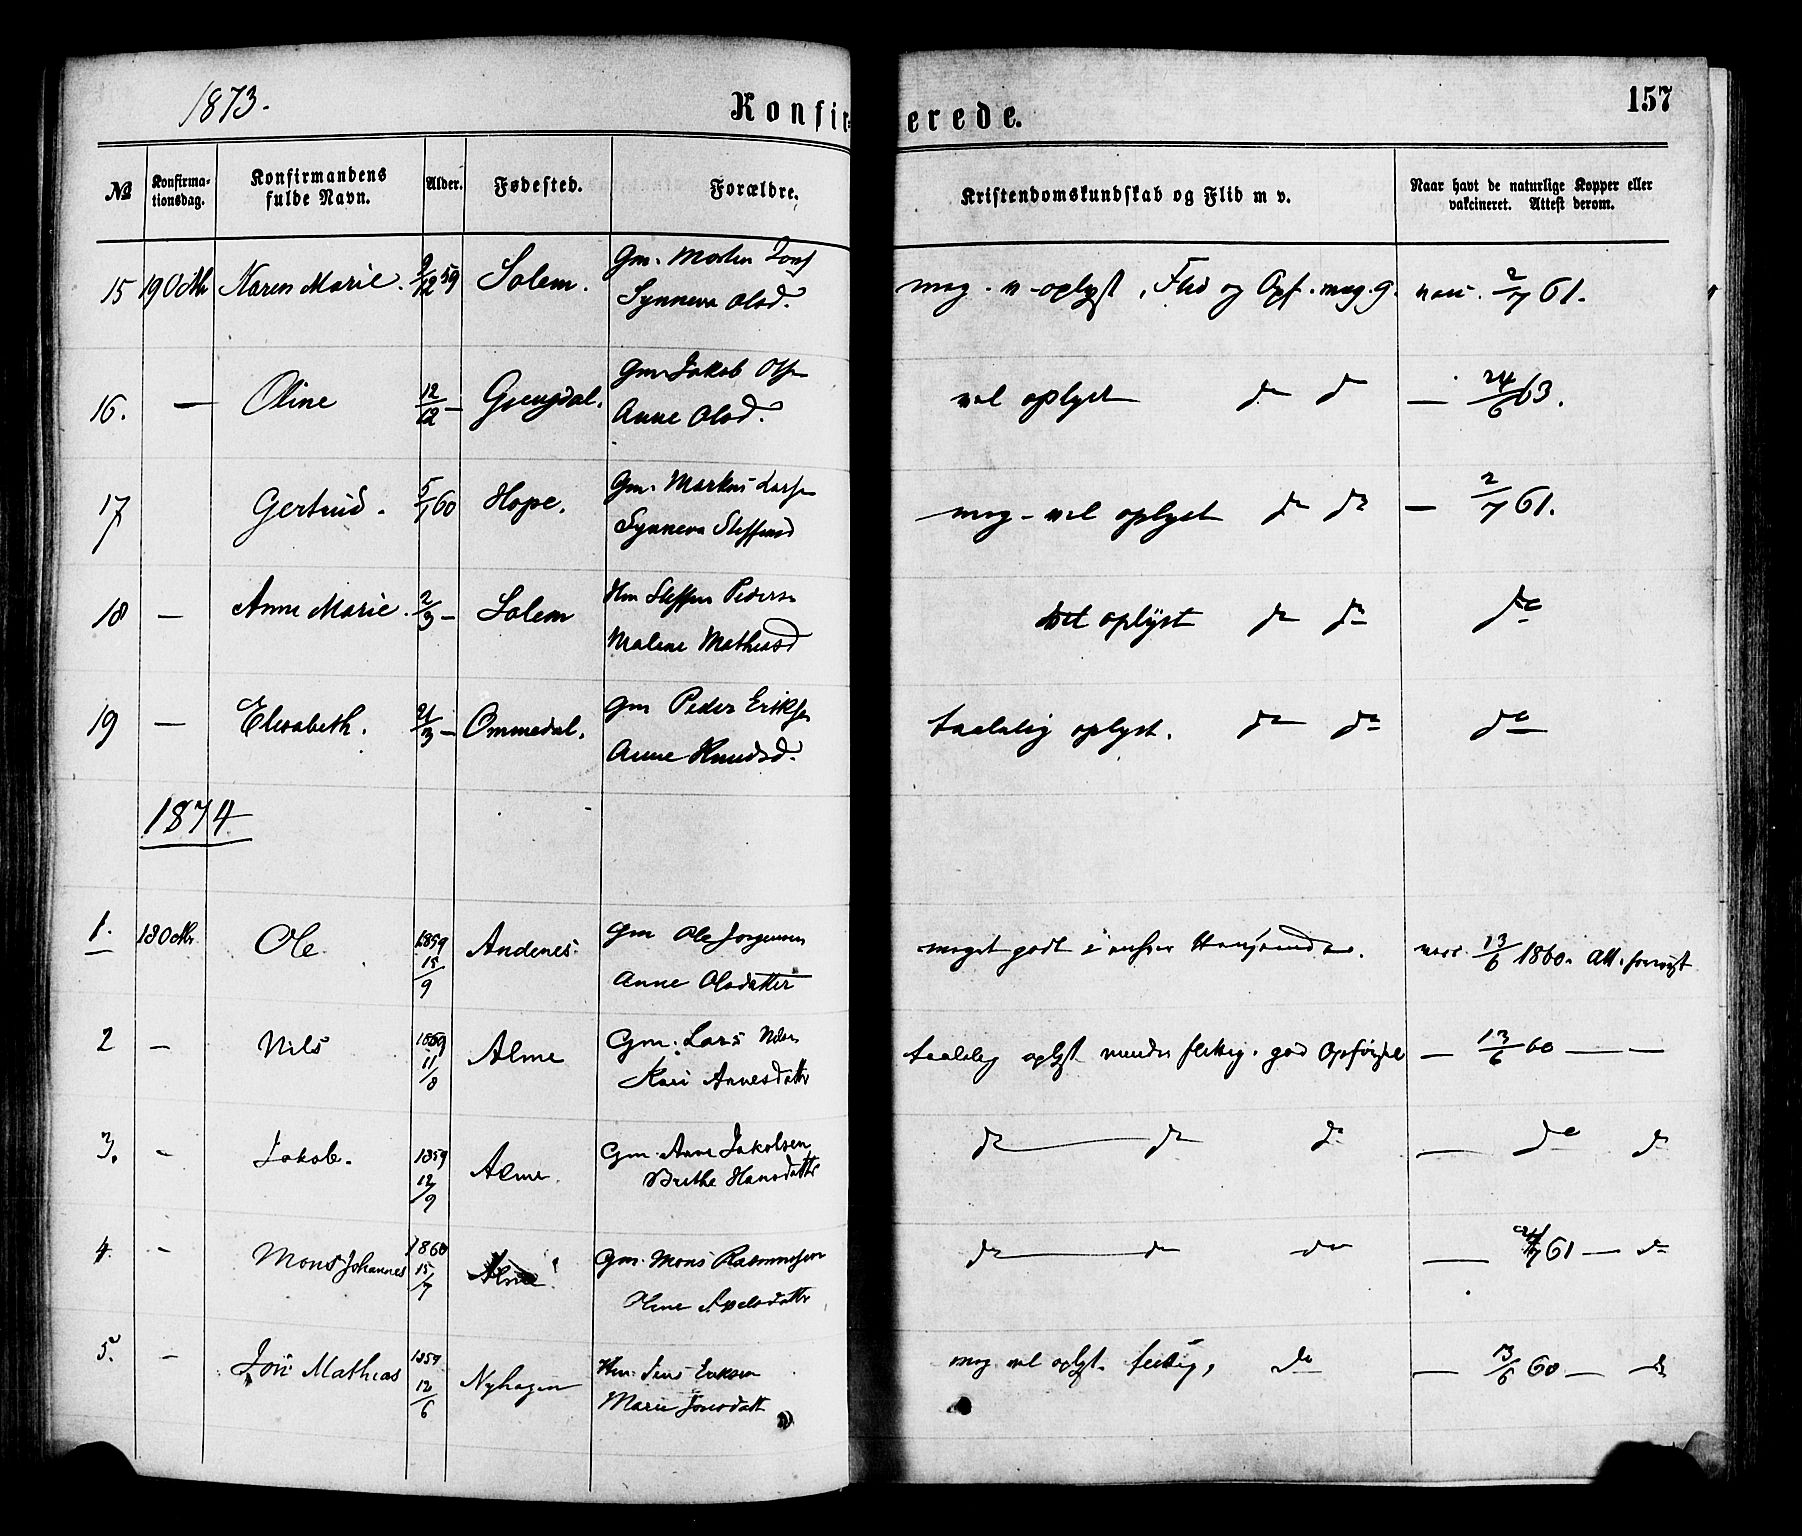 1873.
Konfirmerede.
157
№ Konfirmationsdag. Konfirmandens fulde Navn. Alder. Fødested. Forældre. Kristendomskundskab og Flid m v. Naar havt de naturlige Kopper eller vakcineret. Attest derom.
15 19 Oktb Karen Marie. 9/12 59 Solem. Gm. Morten
Synneva Olsd. mag. v. oplyst, Flid og Opf. mag. g. vacc. 2/7 61.
16. — Oline 12/12 — Gjengdal. Gm Jakob Ols
Anne Olsd. vel oplyst do do — 24/6 63.
17 Gertrud. 5/1 60 Hope. Gm. Markus Lars
Synneva Steffensd mag. vel oplyst do do — 2/7 61.
18 — Anne Marie. 2/3 — Solem Hm Steffen Peders
Malene Mathiasd vel oplyst do do do
19 — Elisabeth. 21/3 — Ommedal. Gm Peder Eriks
Anne Knudsd. taalelig oplyst. do do do
1874
1. 18 Oktb. Ole 1859 15/9 Andenes. Gm Ole Jørgensen
Anne Olsdatter meget godt i enhver Henseende. vacc. 13/6 1860. Att. forevist
2 — Nils 1859 11/8 Alme Gm. Lars Nilsen
Kari Annesdattr taalelig oplyst mindre flittig. god Opførsel — 13/6 60 — —
3. - Jakob. 1859 12/9 Alme. Gm. Anne Jakobsen
Brithe Hansdattr do do do — do do
4. - Mons Johannes 1860 15/7 Alme Gm. Mons Rasmussen
Oline Apelsdattr do do do — 61 — do
5. - Mathias 1859 12/6 Nyhagen Hm. Jens Eriksen
Marie Jonsdatt mag vel oplyst. flittig, do — 13/6 60 — do